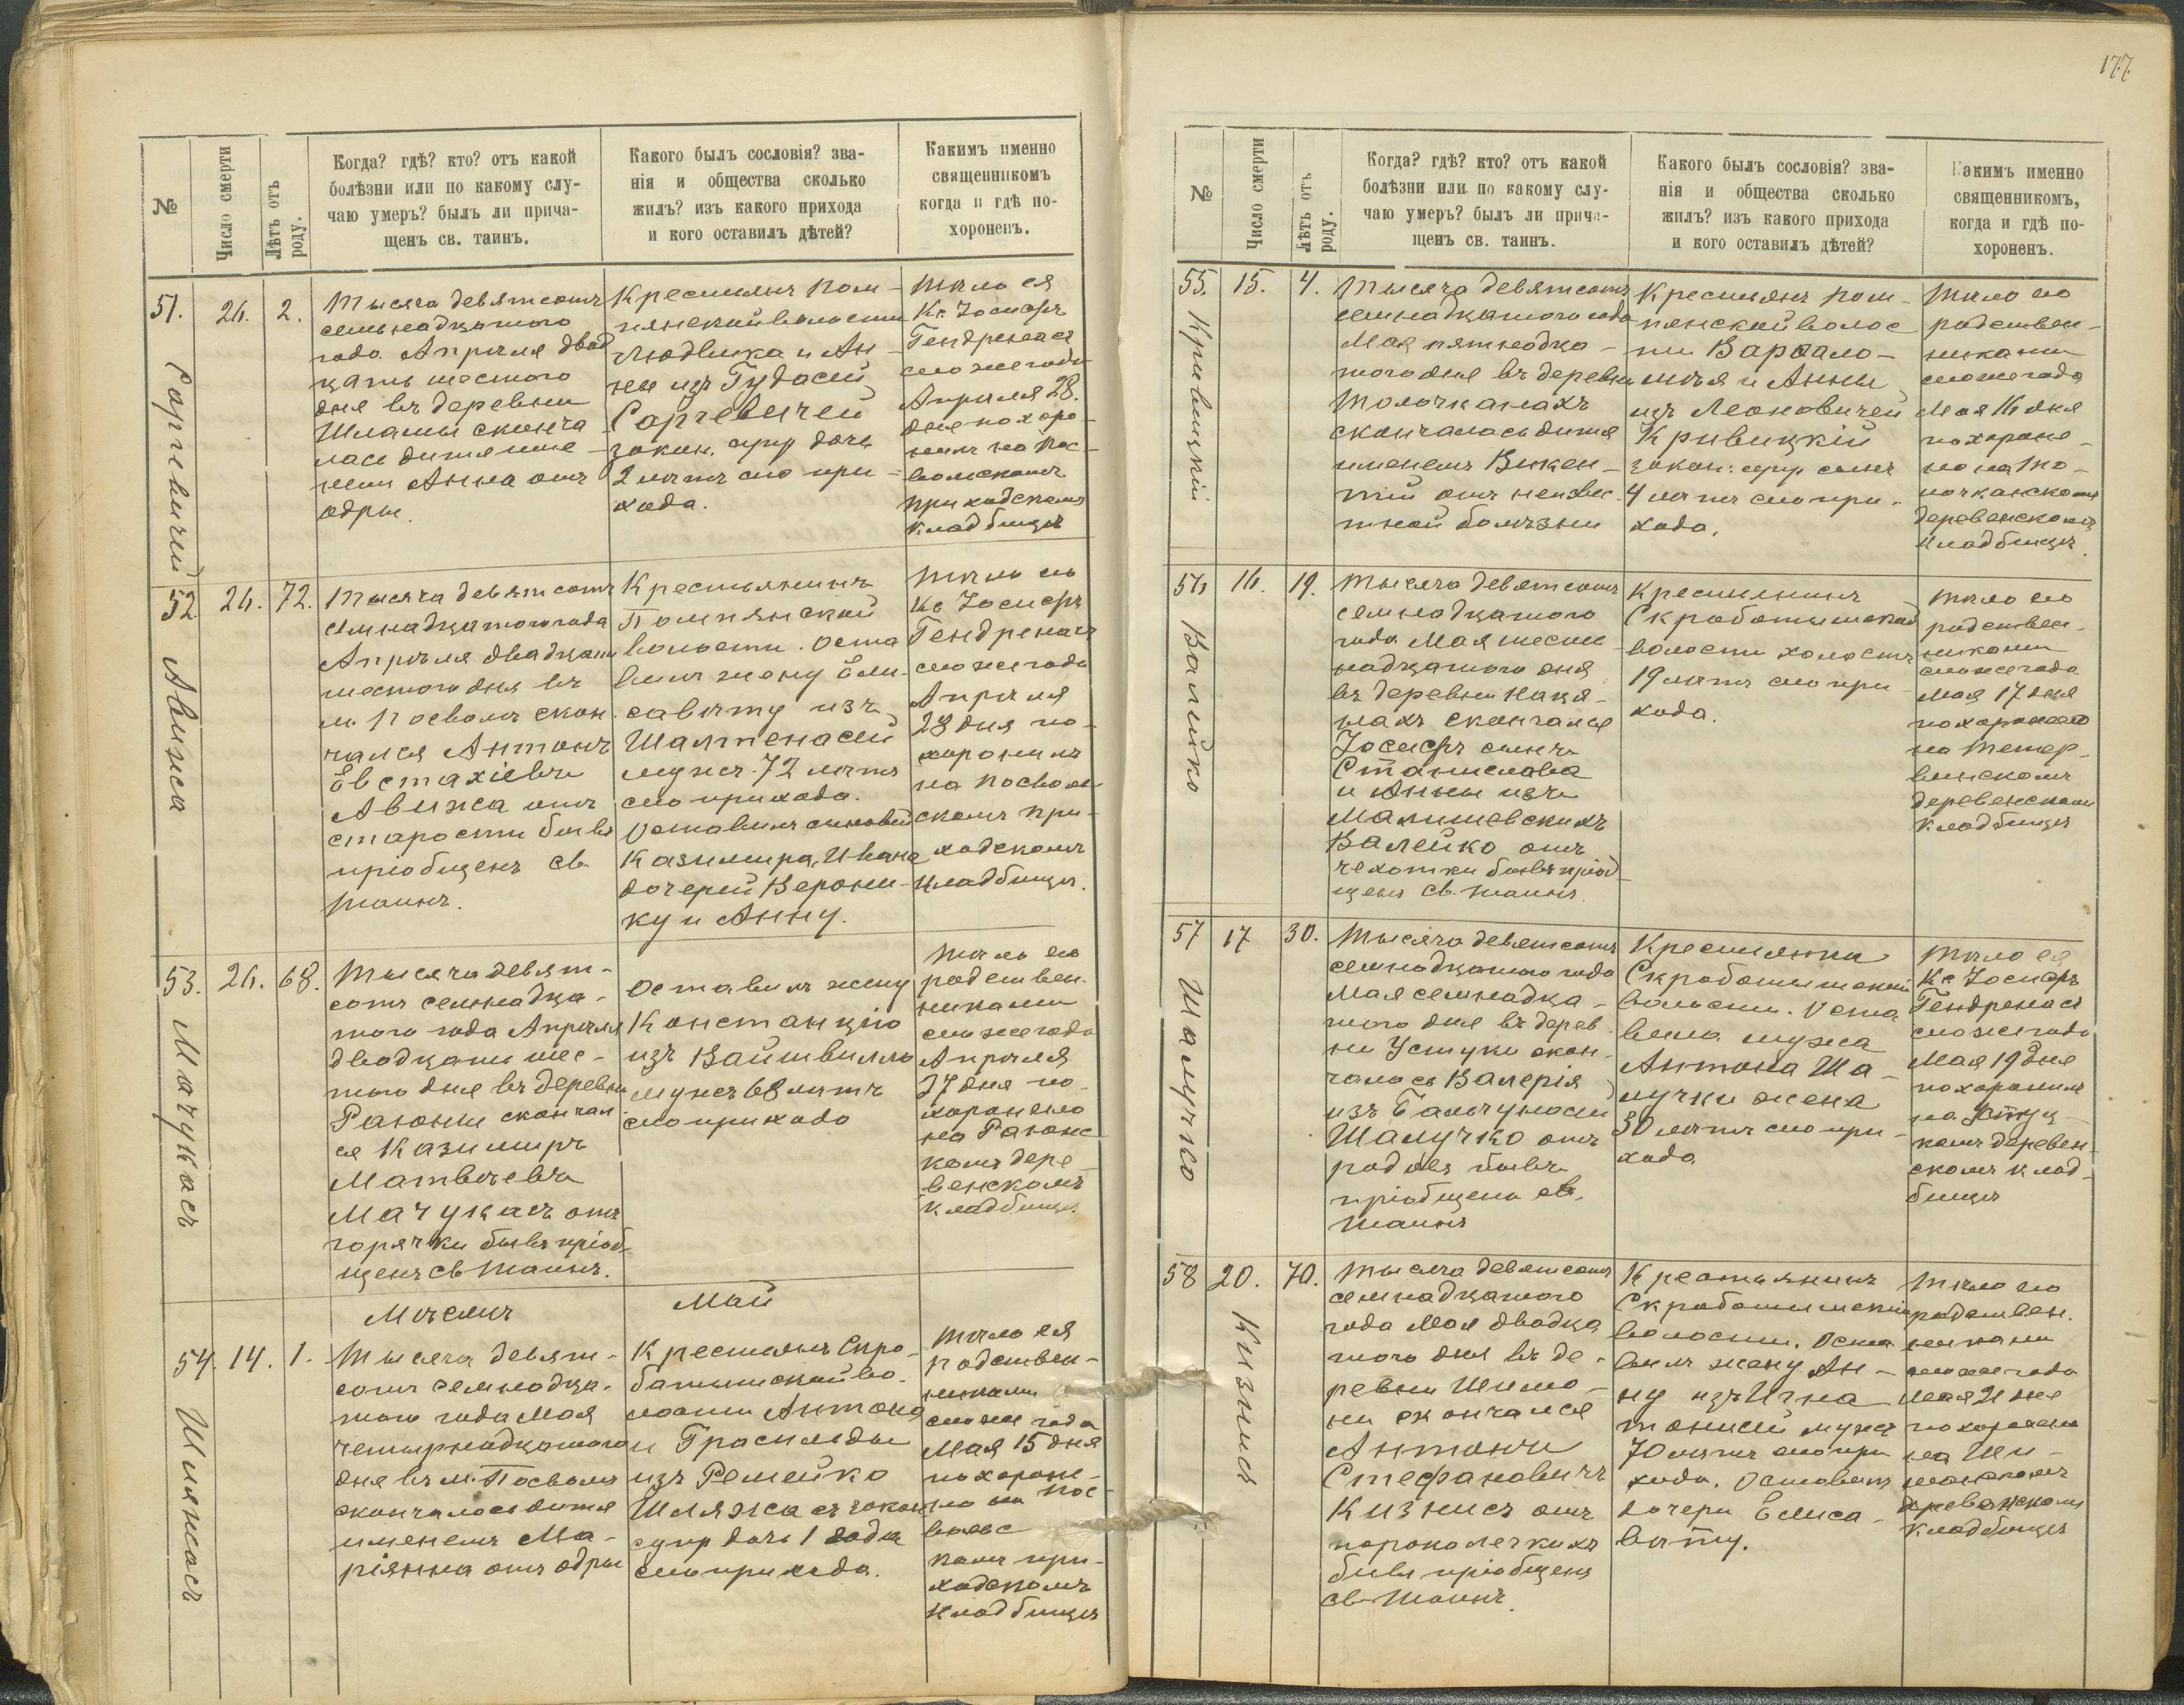 177.
№
Число смерти
Лѣтъ отъ роду.
Когда? гдѣ? кто? отъ какой
болѣзни или по какому слу-
чаю умеръ? былъ ли прича-
щенъ св. таинъ.
Какого былъ сословія? зва-
нія и общества сколько
жилъ? изъ какого прихода
и кого оставилъ дѣтей?
Какимъ именно
священникомъ
когда и гдѣ по-
хороненъ.
51.
Саргевичей
26.
2.
Тысяча девятсотъ
семьнадцатого
года Апрѣля двад
цать шестого
дня въ деревни
Шламы сконча
лась дитя име
нем Анна отъ
одры.
Крестьянъ Пом-
пянской волости
Людвика и Ан-
ны изъ Гудасей
Саргевичей
закон. супр дочь
2 лѣтъ сго при-
хода.
Тѣло ея
Кс Іосифъ
Гендренасъ
сго же года
Апрѣля 28.
дня похоро-
нилъ на Пос-
вольскомъ
приходскомъ
кладбищѣ
52
Авижа
26.
72.
Тысяча девятсотъ
семнадцатого года
Апрѣля двадцать
шестого дня въ
м. Посволѣ скон-
чался Антонъ
Евстахіевъ
Авижа отъ
старости бывъ
пріобщенъ св
Таинъ.
Крестьянинъ
Помпянской
волости. Оста
вилъ жену Ели-
савѣту изъ
Шалтенасей
мужъ. 72 лѣтъ
сго прихода.
Оставилъ сыновей
Казимира, Ивана
дочерей Верони-
ку и Анну.
Тѣло его
Кс Іосифъ
Гендренасъ
сго же года
Апрѣля
28 дня по-
хоронилъ
на Посволь-
скомъ при-
ходскомъ
кладбищѣ.
53.
Мачукасъ
26.
68.
Тысяча девят-
сотъ семнадца-
того года Апрѣля
двадцать шес-
того дня въ деревни
Раюни скончал
ся Казимиръ
Матвѣевъ
Мачукасъ отъ
горячки бывъ пріоб-
щенъ св Таинъ.
Оставилъ жену
Констанцію
изъ Вайтвилло
мужъ 68 лѣтъ
сго прихода
Тѣло его
родствен-
никами
сго же года
Апрѣля
27 дня по-
хоронено
на Раюнс-
комъ дере-
венскомъ
кладбищѣ
Мѣсяцъ
Май
54.
Шляжасъ
14.
1.
Тысяча девят-
сотъ семнадца-
того года Мая
четырнадцатого
дня въ м. Посволѣ
скончалось дитя
именемъ Ма-
ріянна отъ одры
Крестьянъ Скро-
батишской во-
лости Антона
и Грасильды
изъ Ремейко
Шляжасъ закон
супр дочь 1 года
сго прихода.
Тѣло ея
родствен-
никами
сго же года
Мая 15 дня
похороне-
но на Пос-
вольс
комъ при-
ходскомъ
кладбищѣ
№
Число смерти
Лѣтъ отъ роду.
Когда? гдѣ? кто? отъ какой
болѣзни или по какому слу-
чаю умеръ? былъ ли прича-
щенъ св. таинъ.
Какого былъ сословія? зва-
нія и общества сколько
жилъ? изъ какого прихода
и кого оставилъ дѣтей?
Какимъ именно
священникомъ,
когда и гдѣ по-
хороненъ.
55.
Кривицкій
15.
4.
Тысяча девятсотъ
семнадцатого года
Мая пятнадца-
того дня въ деревни
Толочканахъ
скончалось дитя
именемъ Викен-
тій отъ неизвес-
тной болѣзни
Крестьянъ Пом-
пянской волос
ти Варфоло-
мѣя и Анны
изъ Леоновичей
Кривицкій
закон. супр сынъ
4 лѣтъ сго при-
хода.
Тѣло его
родствен-
никами
сго же года
Мая 16 дня
похороне-
но на То-
лочканскомъ
деревенскомъ
кладбищѣ.
56
Валейко
16.
19.
Тысяча девятсотъ
семнадцатого
года Мая шест
надцатого дня
въ деревни Наця-
нахъ скончался
Іосифъ сынъ
Станислава
и Анны изъ
Малишевскихъ
Валейко отъ
чехотки бывъ пріоб-
щенъ св. таинъ.
Крестьянинъ
Скробатишской
волости холостъ
19 лѣтъ сго при-
хода.
Тѣло его
родствен-
никами
сго же года
Мая 17 дня
похоронено
на Тетер-
винскомъ
деревенскомъ
кладбищѣ
57
Шалучко
17
30.
Тысяча девятсотъ
семнадцатого года
Мая семнадца-
того дня въ дерев-
ни Устуки скон-
чалась Валерія
изъ Балчунасей
Шалучко отъ
родовъ бывъ
пріобщена св.
Таинъ
Крестьянка
Скробатишской
волости. Оста
вила мужа
Антона Ша-
лучки жена
30 лѣтъ сго при-
хода
Тѣло ея
Кс Іосифъ
Гендренасъ
сго же года
Мая 19 дня
похоронилъ
на Устуц-
комъ деревен-
скомъ клад-
бищѣ
58
Кизнисъ
20.
70.
Тысяча девятсотъ
семнадцатого
года Мая двадца
того дня въ де-
ревни Шимо-
ни скончался
Антонъ
Стефановичъ
Кизнисъ отъ
порока легкихъ
бывъ пріобщенъ
св Таинъ.
Крестьянинъ
Скробатишской
волости. Оста
вилъ жену Ан-
ну изъ Игна
тонисей мужъ
70 лѣтъ сго при
хода. Оставилъ
дочери Елиса-
вѣту.
Тѣло его
родствен-
никами
сго же года
Мая 21 дня
похоронено
на Ши-
монскомъ
деревенскомъ
кладбищѣ